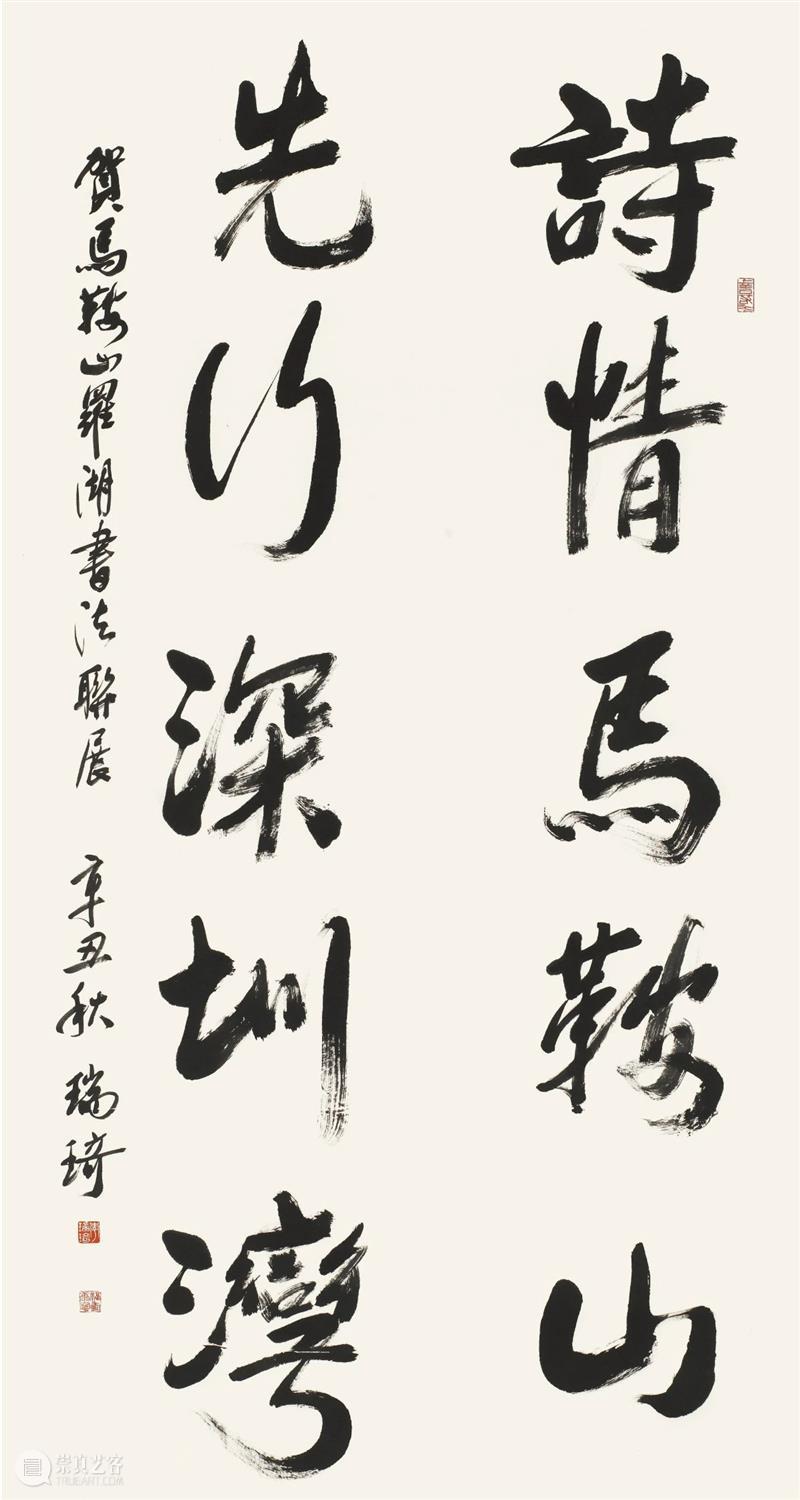 詩情馬鞍山
先行深圳灣
賀馬鞍山羅湖書法聯展 辛丑秋 瑞琦
崇真艺客
TRUEART.COM